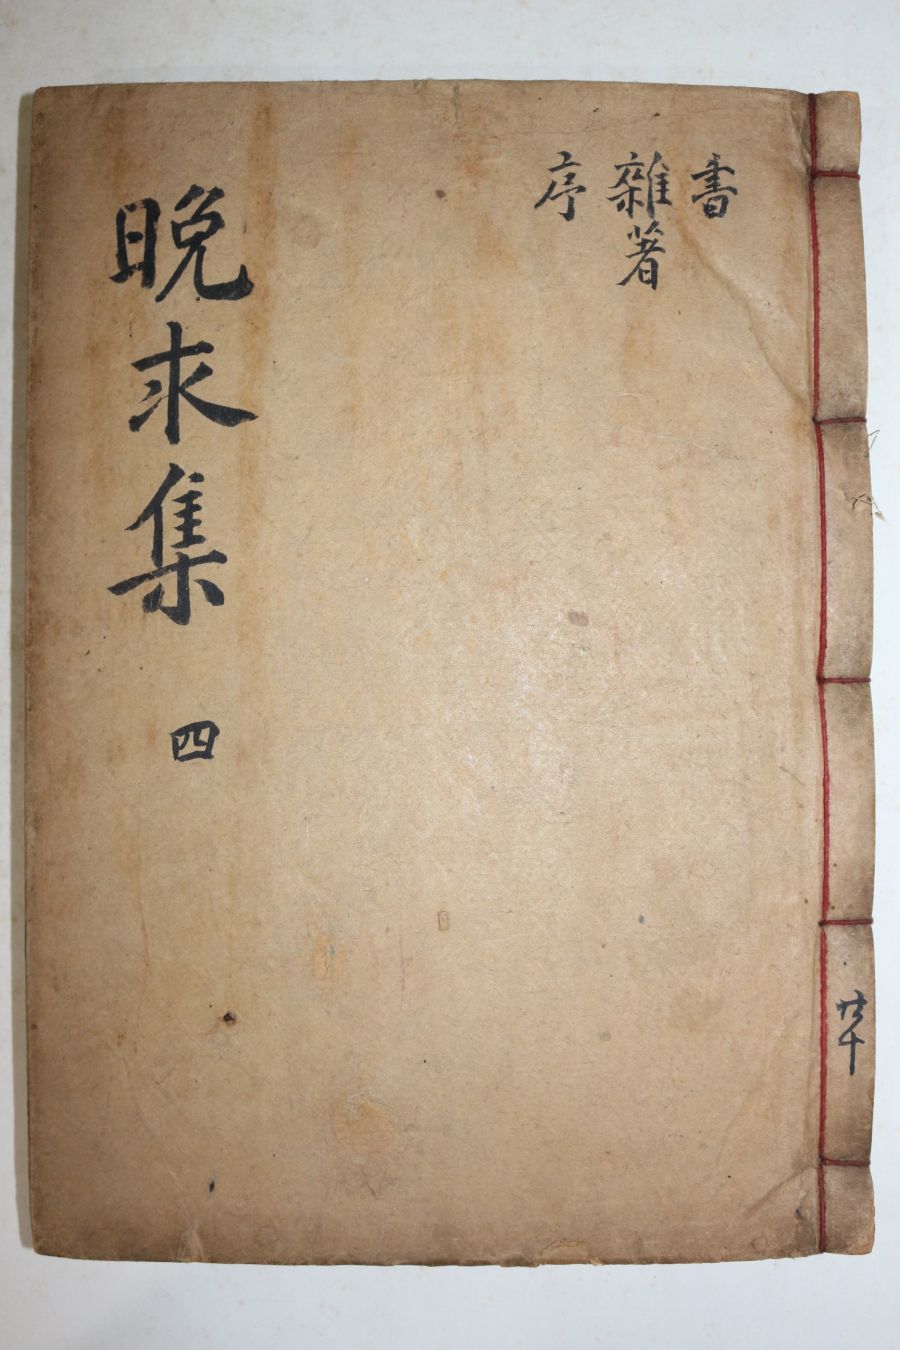 共十
書
雜著
序
晩求集 四